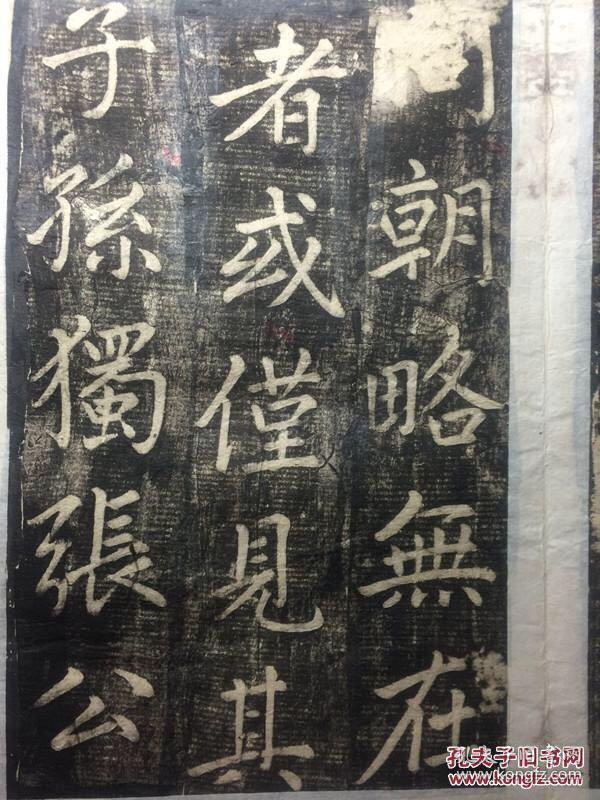 朝略無在
者或僅見其
子孫獨張公
孔夫子旧书网
www.kongfz.com